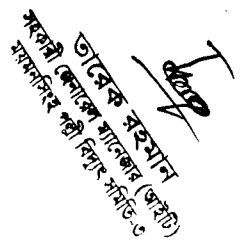 তারেক রহমান
সহকারী জেনারেল ম্যানেজার (আইটি)
ময়মনসিংহ পল্লী বিদ্যুৎ সমিতি-৩